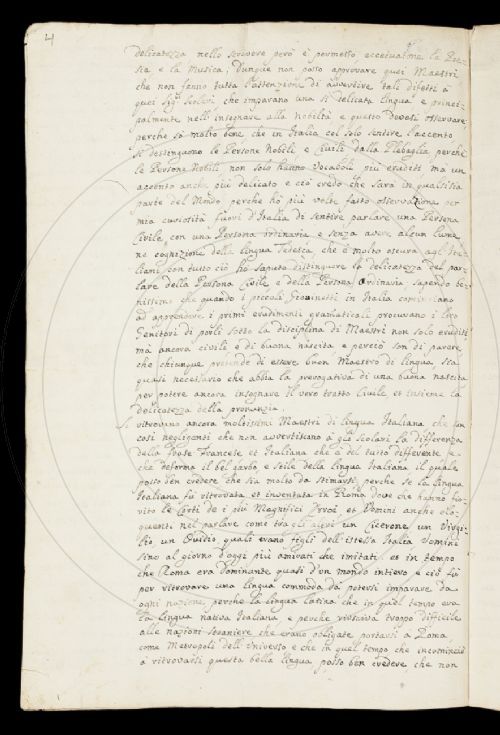 4
delicatezza nello scrivere però è permesso eccettuatone la Poe-
sia e la Musica; Dunque non posso approvare quei Maestri
che non fanno tutta l'attenzione di avvertire tali difetti à
quei Sigri Scolari che imparano una sì delicata lingua e princi-
palmente nell'insegnare alla Nobiltà e questo devesi osservare
perche sò molto bene che in Italia col solo sentire l'accento
si destinguono le Persone Nobili e Civili dalla Plebaglia perche
le Persone Nobili non solo hanno Vocaboli più eruditi mà un
accento anche più delicato e ciò credo che sarà in qualsisia
parte del Mondo perche hò più volte fatto osservazione per
mia curiosità fuori d'Italia di sentire parlare una Persona
Civile, con una Persona ordinaria e senza avere alcun lume
ne cognizione della lingua Tedesca, che è molto oscura agl' Ita-
liani con tutto ciò hò saputo distinguere la delicatezza del par-
lare della Persona Civile e della Persona Ordinaria sapendo be-
nissimo che quando i piccoli Giovinetti in Italia cominciano
ad apprendere i primi erudimenti gramaticali procurano i loro
Genitori di porli sotto la disciplina di Maestri non solo eruditi
mà ancora civili e di buona nascita e perciò son di parere
che chiunque pretende di essere buon Maestro di lingua sia
quasi necessario che abbia la prerogativa di una buona nascita
per potere ancora insegnare il vero tratto Civile et insieme la
delicatezza della pronunzia.
Si ritrovano ancora moltissimi Maestri di lingua Italiana che son
così negligenti che non avvertiscano à gli Scolari la differenza
della frase Francese et Italiana che è del tutto differente e
che deforma il bel garbo e stile della lingua Italiana il quale
posso ben credere che sia molto da stimarsi perche se la lingua
Italiana fù ritrovata et inventata in Roma dove che hanno fio-
rito le Corti de i più Magnifici Eroi et Uomini anche elo-
quenti nel parlare come trà gli altri un Cicerone un Virgi-
lio un Ovidio quali erano figli dell'istessa Italia Uomini
sino al giorno d'oggi più amirati che imitati et in tempo
che Roma era dominante quasi d'un mondo intiero e ciò fù
per ritrovare una lingua commoda da potersi imparare da
ogni nazione, perche la lingua latina che in quel tempo era
la lingua nativa Italiana, e perche riusciva troppo difficile
alle nazioni straniere che erano obligate portarsi a Roma,
come Metropoli dell'Universo e che in quel tempo che incominciò
à ritrovarsi questa bella lingua posso ben credere che non